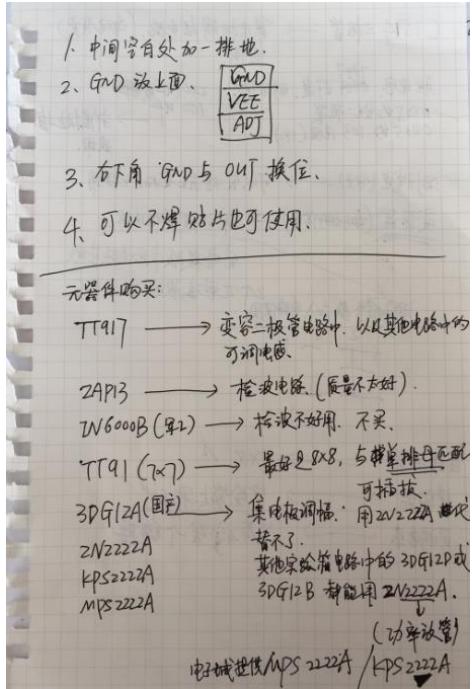 1. 中间空白处加一排地.
2、GND 放上面.
GND
VEE
ADJ
3、右下角 GND 与 OUT 换位.
4、可以不焊贴片也可使用.
元器件购买:
TT917 → 变容二极管电路中, 以及其他电路中的
可调电感.
2AP13 → 检波电路. (质量不太好).
IN6000B (军2) → 检波不好用. 不买.
TT91 (7×7) → 最好是8×8, 与单排母匹配
可插拔.
3DG12A (国产) → 集电极调幅: 用2N2222A 代
替不了.
2N2222A
其他实验箱电路中的3DG12D或
KPS2222A
3DG12B 都能用 2N2222A.
MPS2222A
(功率放管)
电子城提供 MPS2222A / KPS2222A